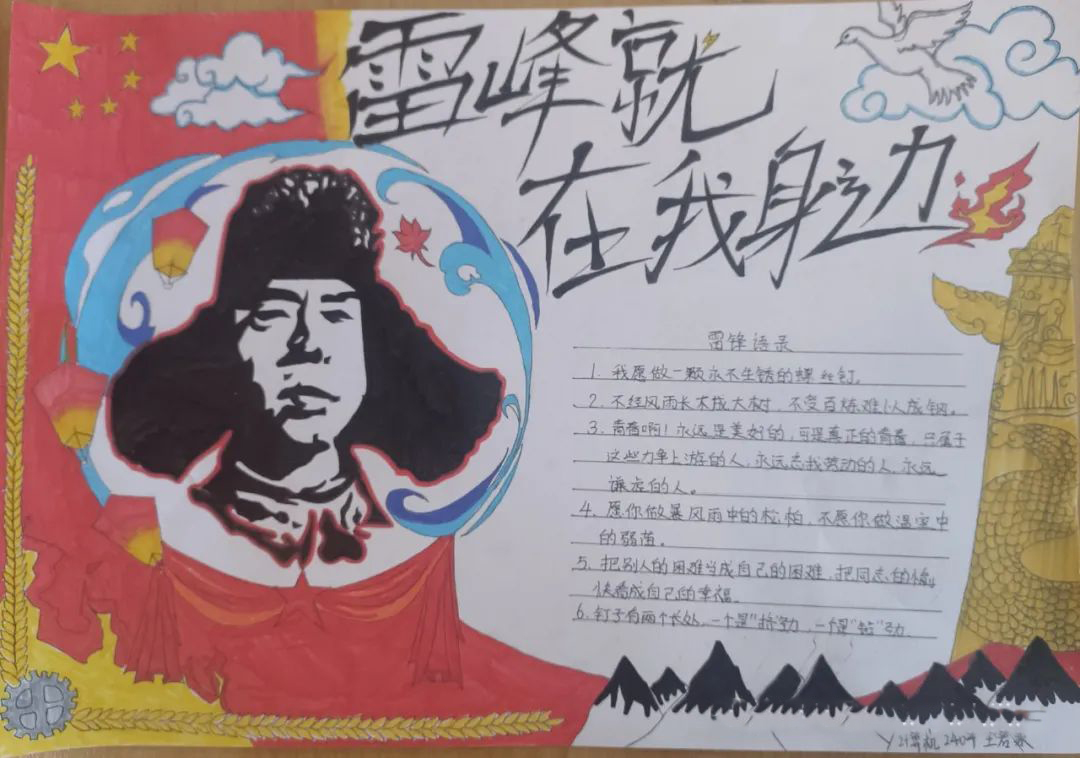 雷峰就
在我身边
雷锋语录
1. 我愿做一颗永不生锈的螺丝钉。
2. 不经风雨长不成大树，不受百炼难以成钢。
3. 青春啊！永远是美好的，可是真正的青春，只属于
这些力争上游的人，永远忘我劳动的人，永远
谦虚的人。
4. 愿你做暴风雨中的松柏，不愿你做温室中
的弱苗。
5. 把别人的困难当成自己的困难，把同志的愉
快看成自己的幸福。
6. 钉子有两个长处，一个是"挤"劲，一个是"钻"劲。
计算机